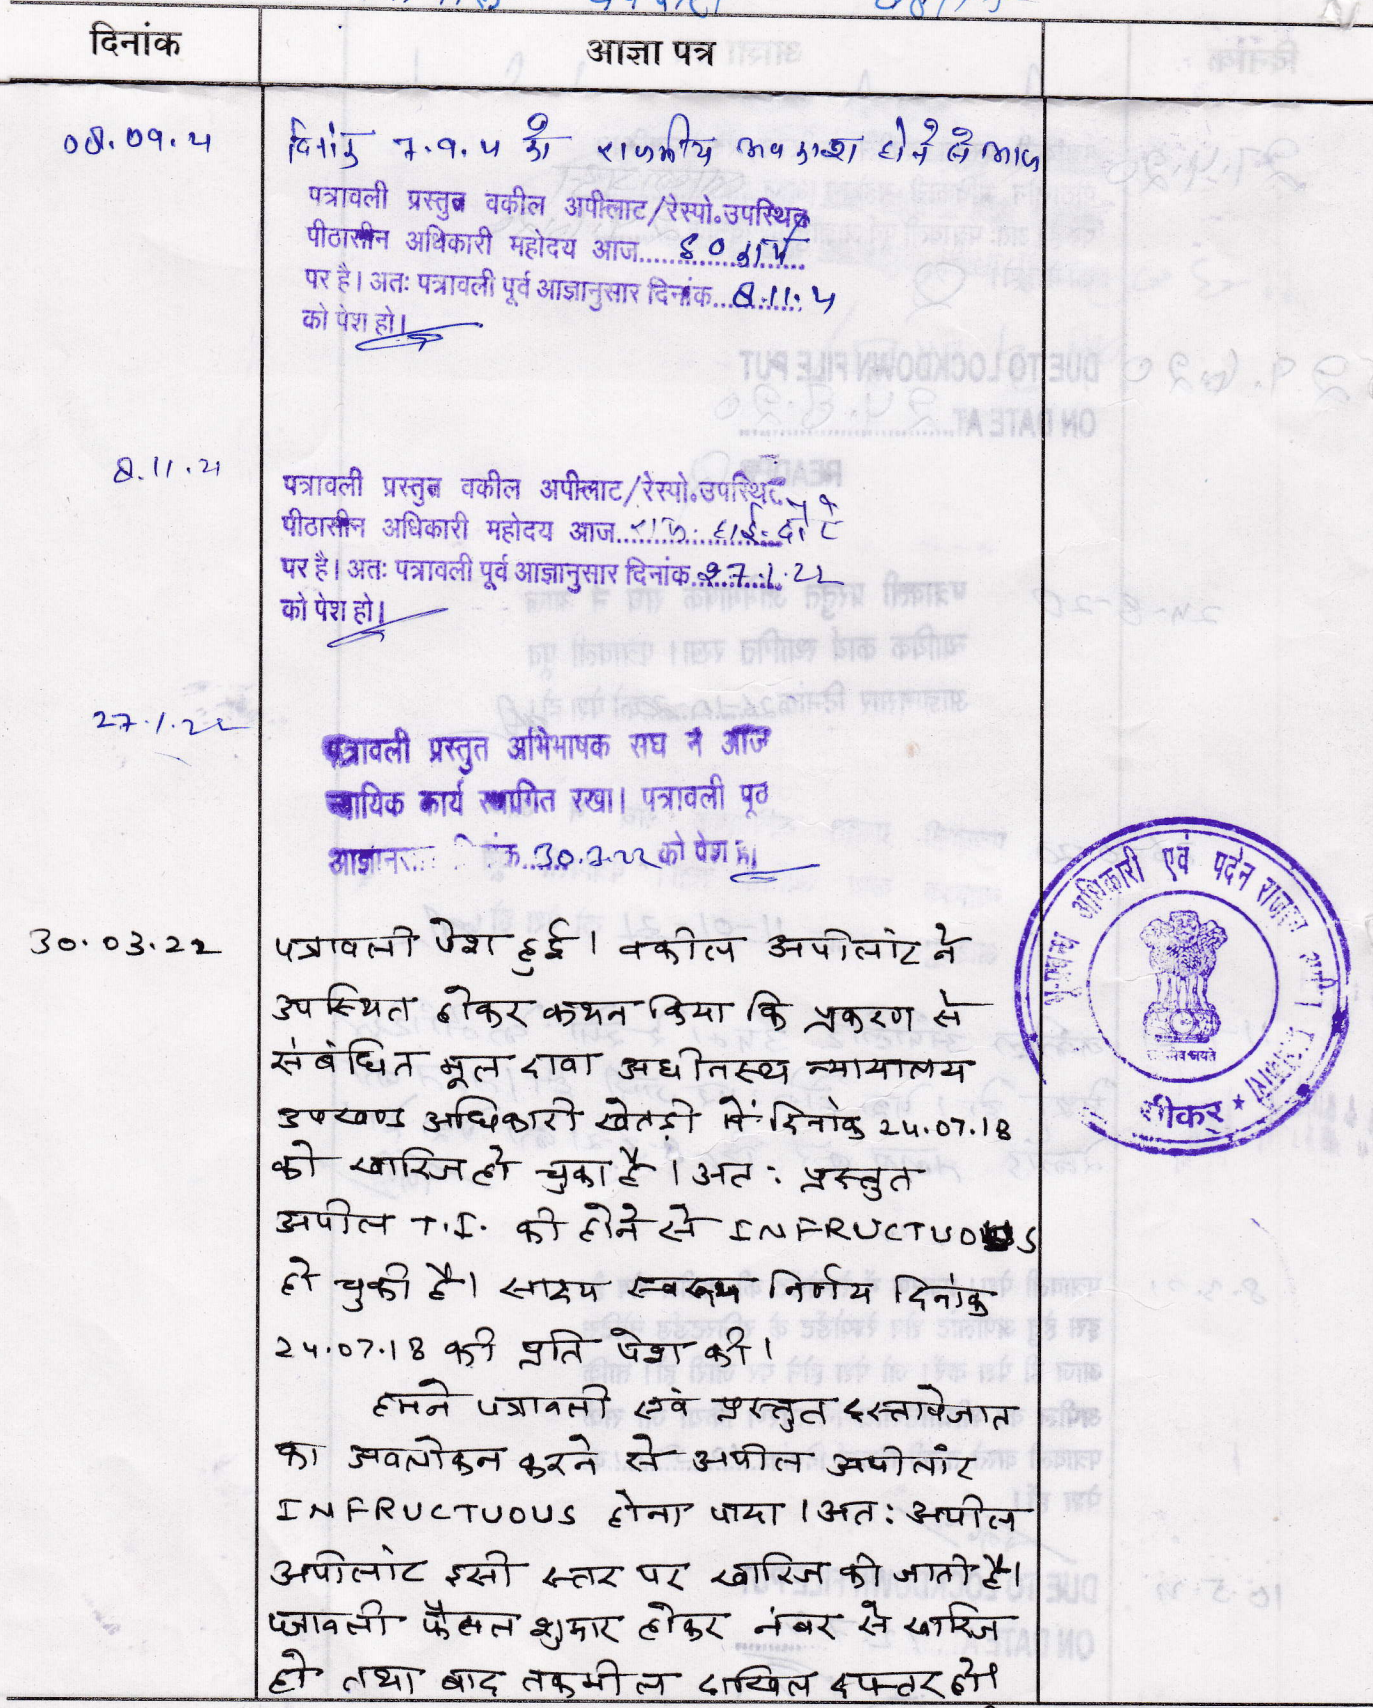 दिनांक
आज्ञा पत्र
08.09.21
दिनांक 7.9.21 को राजकीय अवकाश होने से आज
पत्रावली प्रस्तुत वकील अपीलाट/रेस्पो.उपस्थित
पीठासीन अधिकारी महोदय आज
पर है। अतः पत्रावली पूर्व आज्ञानुसार दिनांक 8.11.21
को पेश हो।
8.11.21
पत्रावली प्रस्तुत वकील अपीलाट/रेस्पो.उपस्थित
पीठासीन अधिकारी महोदय आज
पर है। अतः पत्रावली पूर्व आज्ञानुसार दिनांक 27.1.22
को पेश हो।
27.1.22
पत्रावली प्रस्तुत अभिभाषक संघ ने आज
न्यायिक कार्य स्थगित रखा। पत्रावली पूर्व
30.3.22 को पेश हो।
30.03.22
पत्रावली पेश हुई। वकील अपीलांट ने
उपस्थित होकर कथन किया कि प्रकरण से
संबंधित मूल दावा अधीनस्थ न्यायालय
उपखण्ड अधिकारी खेतड़ी में दिनांक 24.07.18
को खारिज हो चुका है। अत: प्रस्तुत
अपील T.I. की होने से INFRUCTUOUS
हो चुकी है। साक्ष्य स्वरूप निर्णय दिनांक
24.07.18 की प्रति पेश की।
हमने पत्रावली एवं प्रस्तुत दस्तावेजात
का अवलोकन करने से अपील अपीलांट
INFRUCTUOUS होना पाया। अत: अपील
अपीलांट इसी स्तर पर खारिज की जाती है।
पत्रावली फैसल शुमार होकर नंबर से खारिज
हो तथा बाद तकमील दाखिल दफ्तर हो।
अधिकारी एवं पदेन राजस्व
सीकर